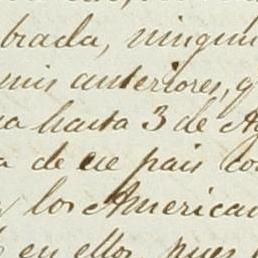 brada, ningun
mis anteriores, q
a hasta 3 de Ag
a de ese pais co
y los America
en ellos, pues